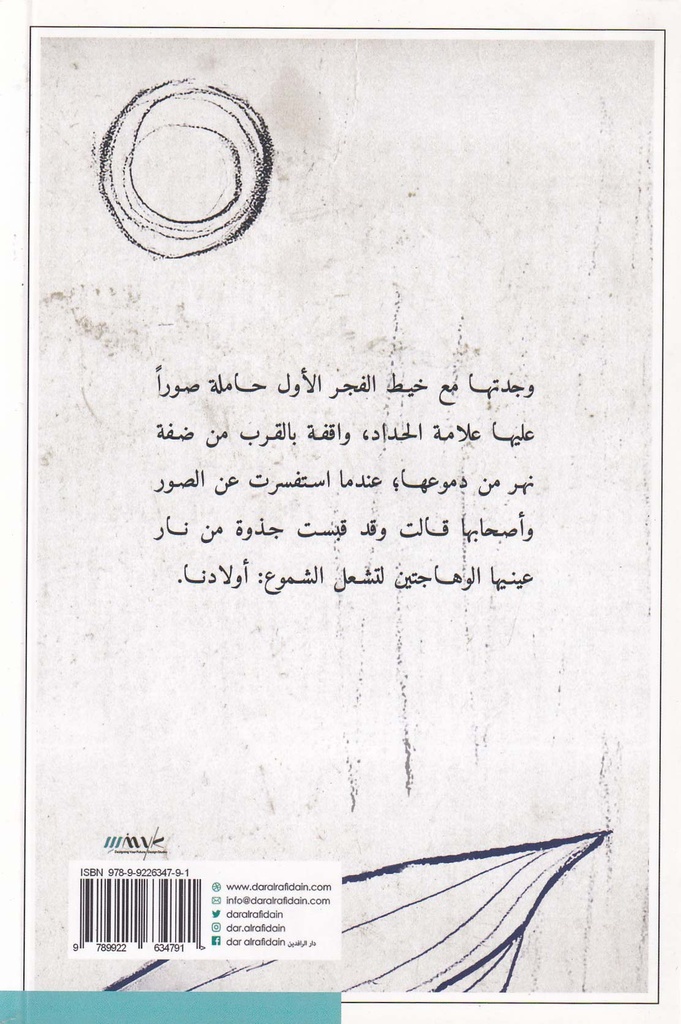 وجدتها مع خيط الفجر الأول حاملة صوراً
عليها علامة الحداد، واقفة بالقرب من ضفة
نهر من دموعها؛ عندما استفسرت عن الصور
وأصحابها قالت وقد قبست جذوة من نار
عينيها الوهاجتين لتشعل الشموع: أولادنا.
ISBN 978-9-9226347-9-1
9 789922 634791 >
www.daralrafidain.com
info@daralrafidain.com
daralrafidain
dar.alrafidain
dar alrafidain دار الرافدين